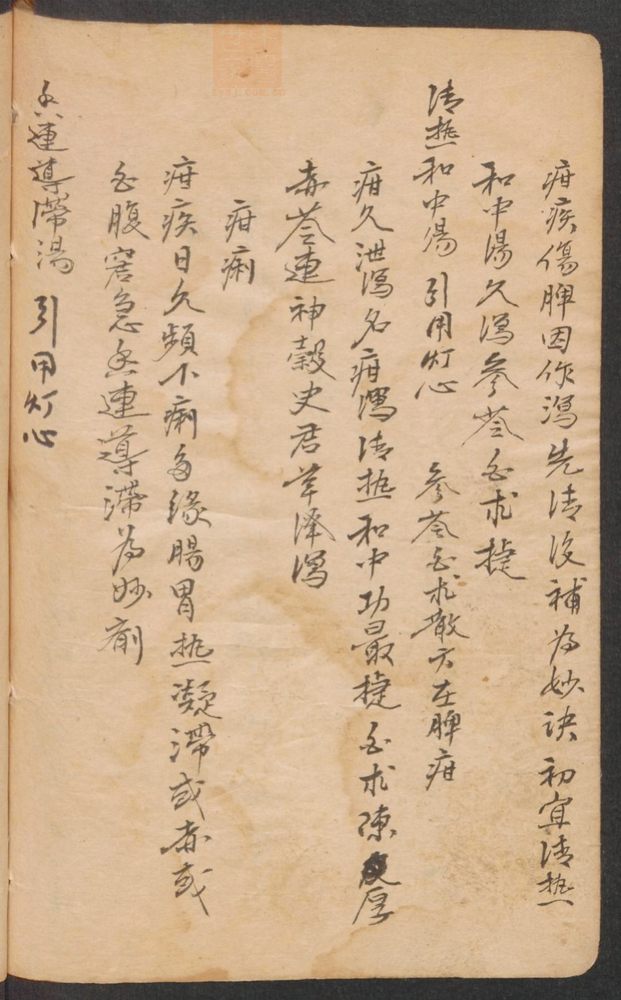 疳疾傷脾因作瀉先清後補為妙訣初宜清热
和中湯久瀉参苓白朮捷
清热和中湯 引用灯心 参苓白朮散方在脾疳
疳久泄瀉名疳瀉清热和中功最捷白朮陳皮厚
赤苓連神榖史君草泽瀉
疳痢
疳疾日久頻下痢多缘腸胃热凝滯或赤或
白腹窘急香連導滯為妙劑
香連導滯湯 引用灯心